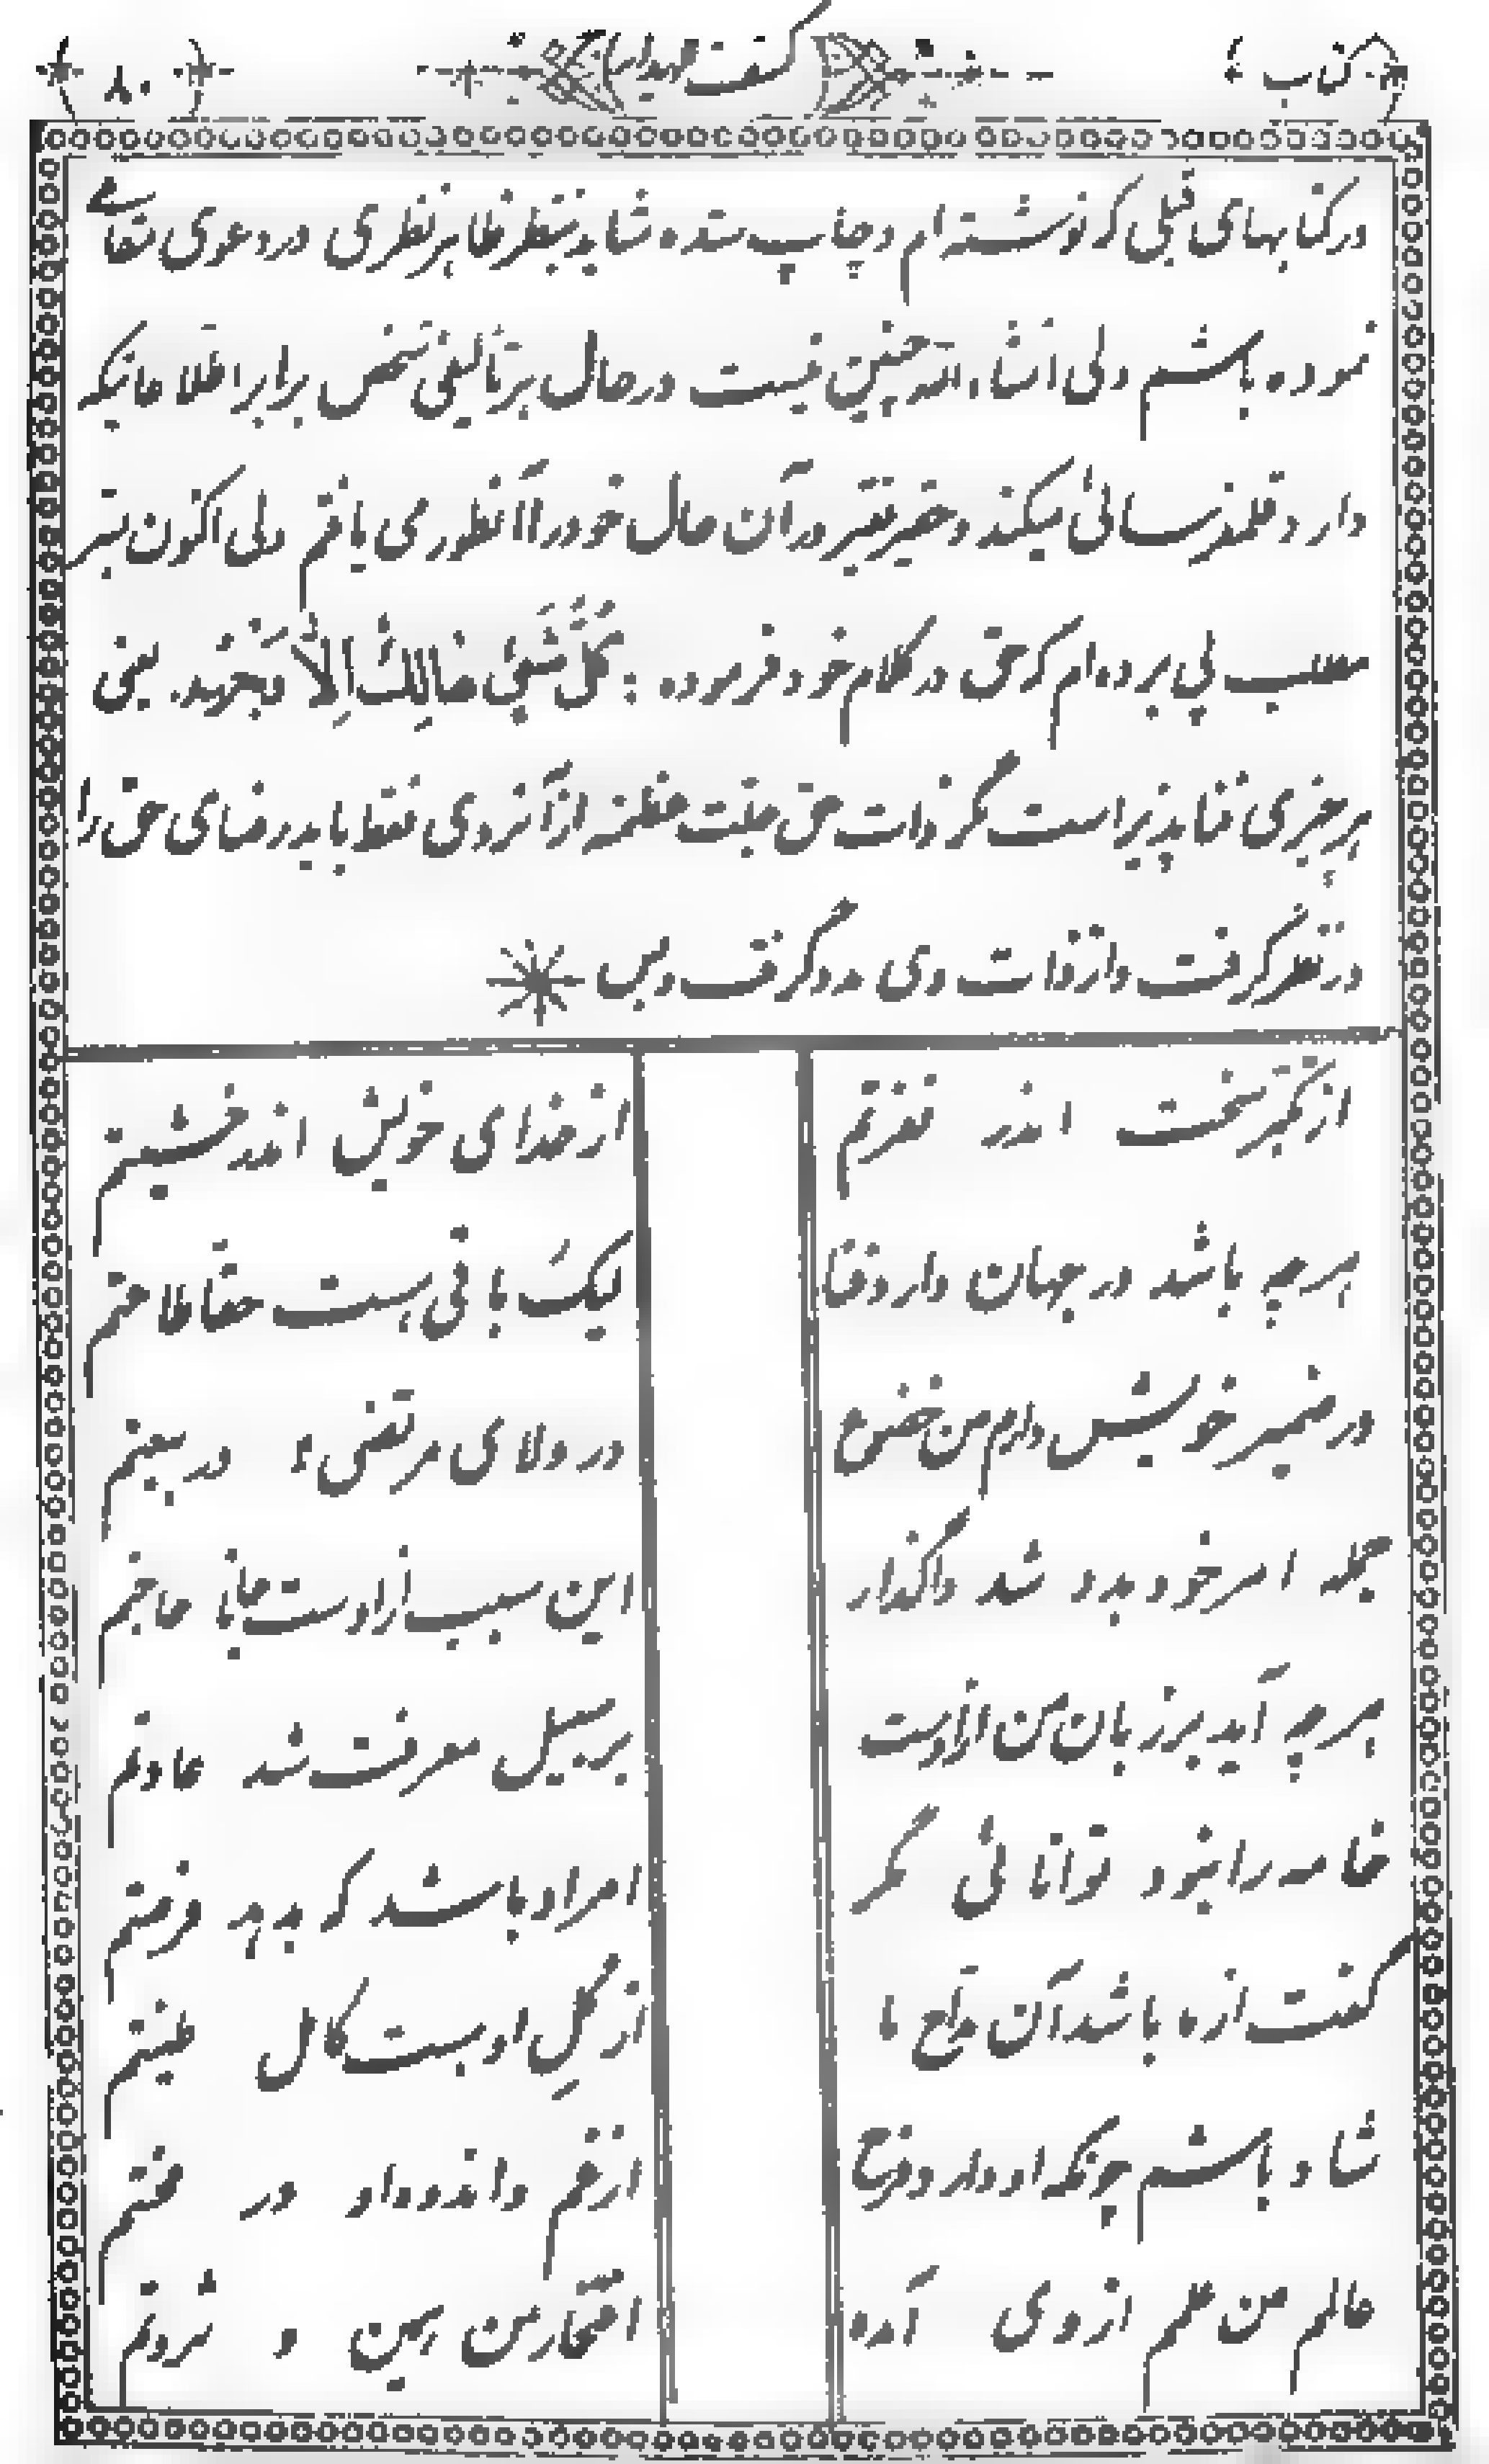 کتاب
۸۰
در کتابهای قبلی که نوشته‌ام و چاپ شده شاید بنظر ظاهر نظری در دعوی مقامے
نموده باشم ولی انشاءالله چنین نیست در حال هر تألیفی شخص برابر اطلاعاتیکه
دارد قلمفرسائی میکند و حقیر فقیر در آن حال خود را آنطوری یافتم ولی اکنون بسر
مطلب پی برده‌ام که حق در کلام خود فرموده : کُلُّ شَیْئٍ هٰالِکٌ اِلاّٰ وَجْهَهُ. یعنی
هر چیزی فناپذیر است مگر ذات حق جلّت عظمته از آنروی فقط باید رضای حق را
در نظر گرفت و از ذات وی مدد گرفت و بس
از تکبّر سخت اندر نفرتم
از خدای خویش اندر خشیتم
هر چه باشد در جهان دارد فنا
لیکَ باقی هست حقّا ظاحتم
در ضمیر خویش دارم من خضوع
در ولای مرتضیء در بیعتم
جمله امر خود بدو شد واگذار
این سبب از اوست جانا حاجتم
هر چه آید بر زبان من از اوست
بر سبیل معرفت شد عادتم
خامه را نبود توانائی مگر
امر او باشد که بدهد فرصتم
گفت از ما باشد آن مدّاح ما
از گِلِ او هست کامل طینتم
شاد باشم چونکه او دارد فرح
از غم و اندوه او در محنتم
عالم من علم از وی آمده
افتخار من بهین و ثروتم